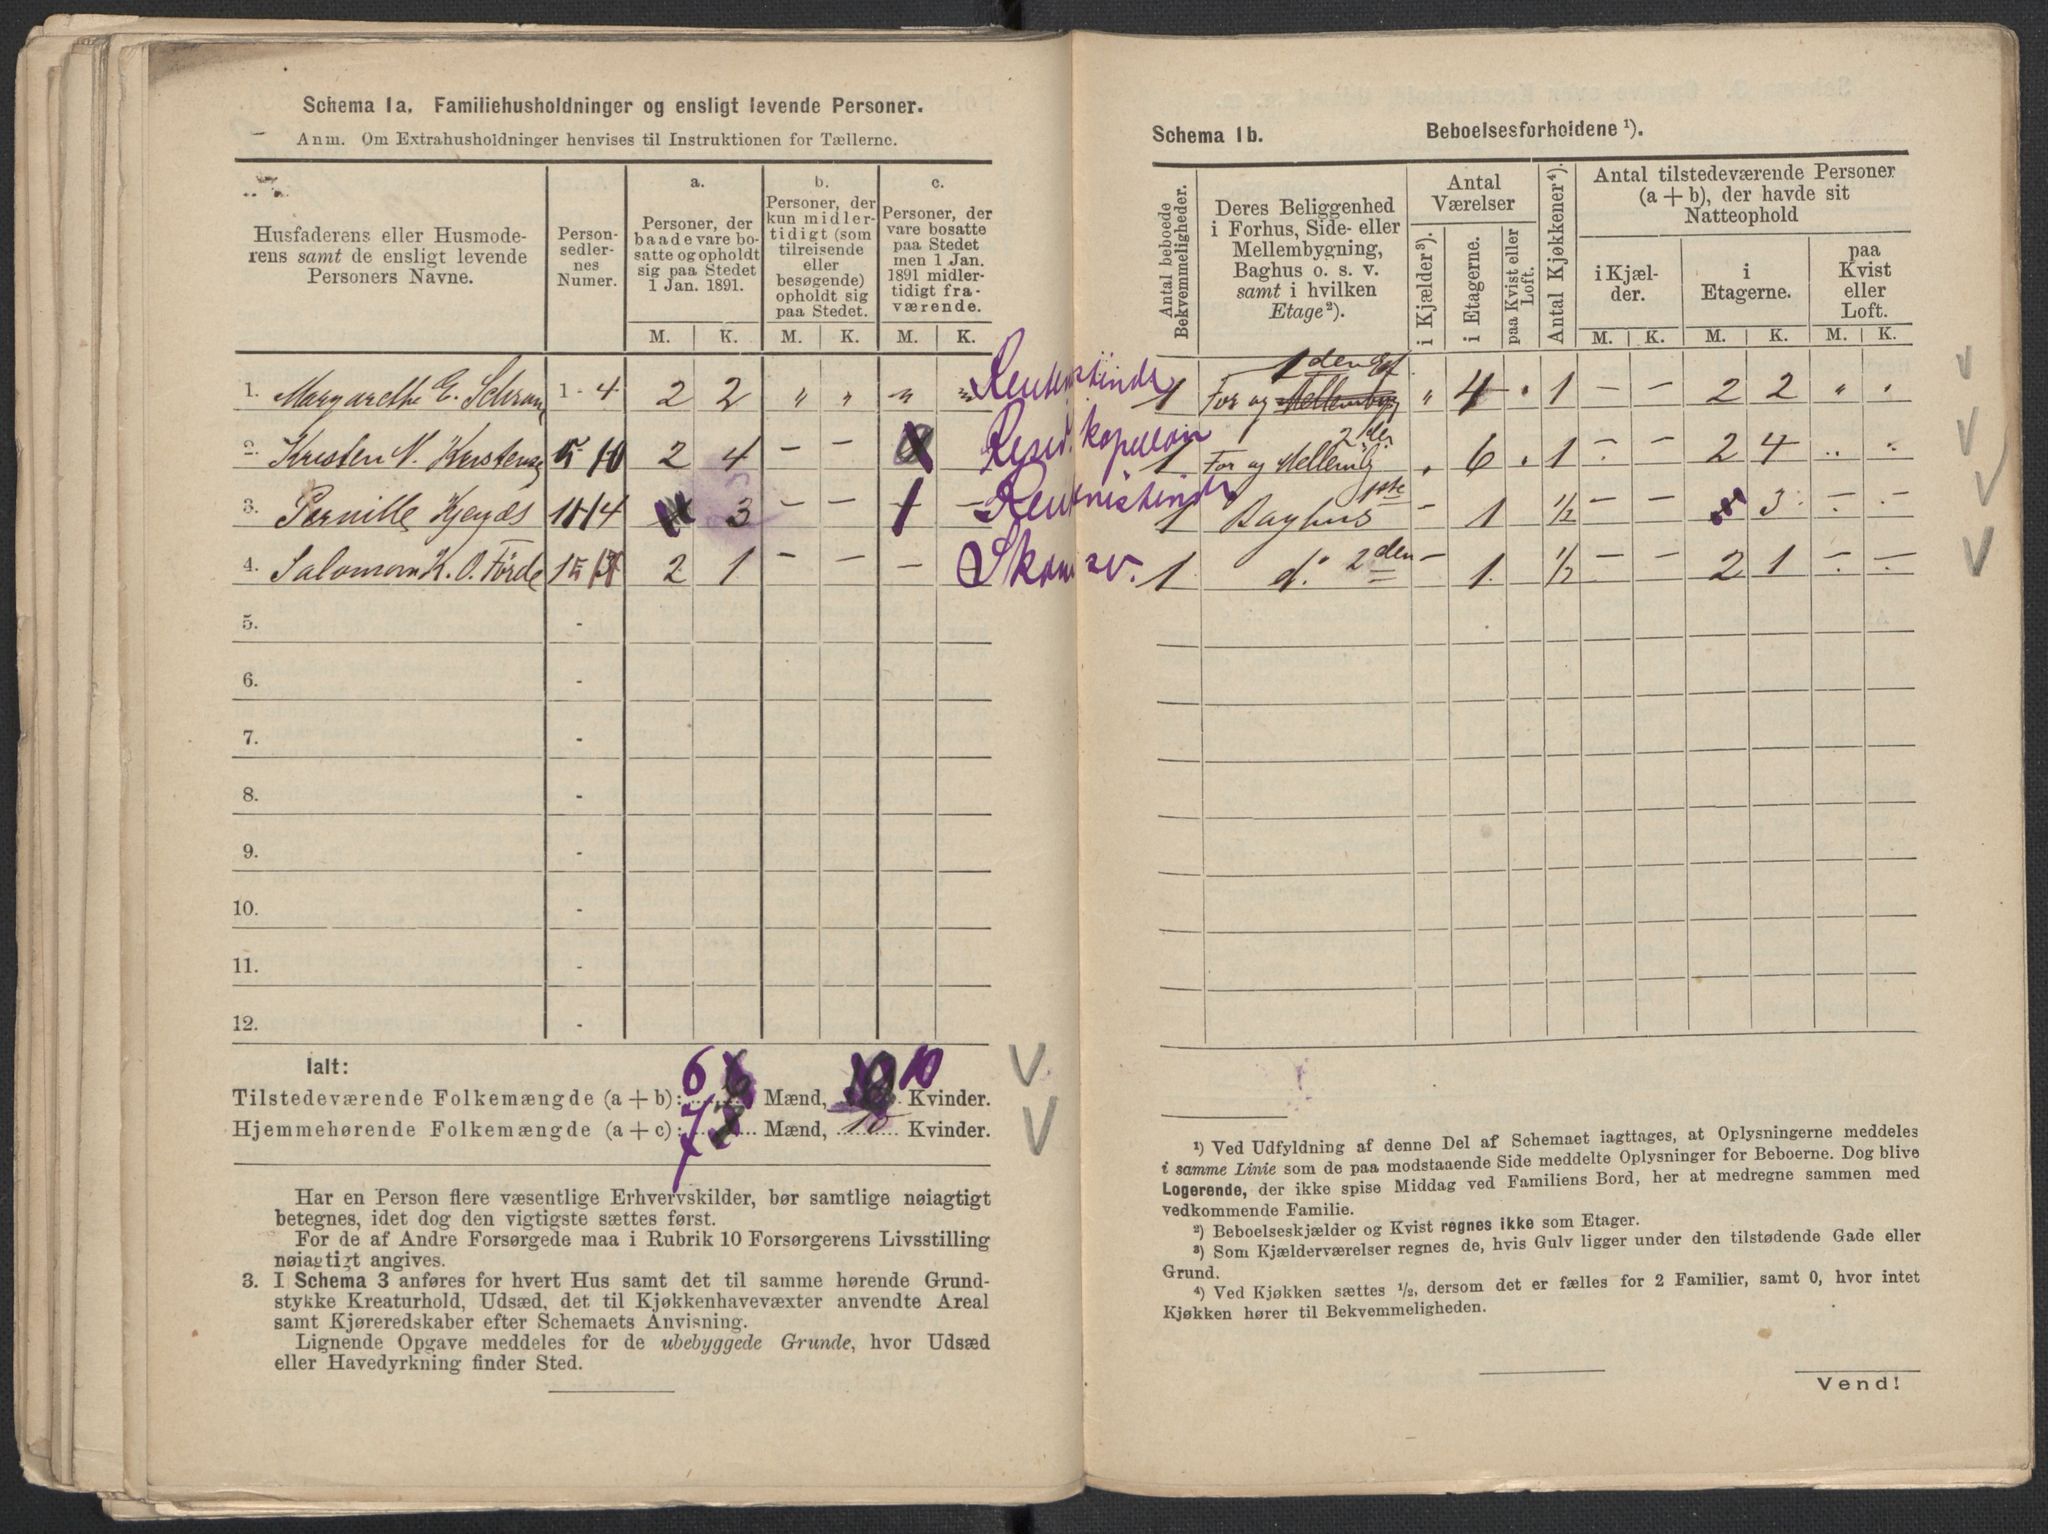 Schema 1a. Familiehusholdninger og ensligt levende Personer.
Anm. Om Extrahusholdninger henvises til Instruktionen for Tællerne.
Husfaderens eller Husmode-
rens samt de ensligt levende
Personers Navne.
Person-
sedler-
nes
Numer.
a.
Personer, der
baade vare bo-
satte og opholdt
sig paa Stedet
1 Jan. 1891.
b.
Personer, der
kun midler-
tidigt (som
tilreisende
eller
besøgende)
opholdt sig
paa Stedet.
c.
Personer, der
vare bosatte
paa Stedet
men 1 Jan.
1891 midler-
tidigt fra-
værende.
M. K. M. K. M. K.
1. Margarethe E. 1 - 4 2 2 " " " " Rentenistinde
2. Kristen N. 10 2 4 - - Resid. kapellan
3. Pernille 14 3 - - 1 - Rentenistinde
4. Salomon K. O. Førde 2 1 - - -
5. -
6. -
7. -
8. -
9. -
10. -
11. -
12. -
Ialt:
Tilstedeværende Folkemængde (a + b): 6 Mænd, 10 Kvinder.
Hjemmehørende Folkemængde (a + c): 7 Mænd, 10 Kvinder.
Har en Person flere væsentlige Erhvervskilder, bør samtlige nøiagtigt
betegnes, idet dog den vigtigste sættes først.
For de af Andre Forsørgede maa i Rubrik 10 Forsørgerens Livsstilling
nøiagtigt angives.
3. I Schema 3 anføres for hvert Hus samt det til samme hørende Grund-
stykke Kreaturhold, Udsæd, det til Kjøkkenhavevæxter anvendte Areal
samt Kjøreredskaber efter Schemaets Anvisning.
Lignende Opgave meddeles for de ubebyggede Grunde, hvor Udsæd
eller Havedyrkning finder Sted.
Schema 1b. Beboelsesforholdene ¹).
Antal beboede
Bekvemmeligheder.
Deres Beliggenhed
i Forhus, Side- eller
Mellembygning,
Baghus o. s. v.
samt i hvilken
Etage²).
Antal
Værelser
i Kjælder³).
i Etagerne.
paa Kvist eller
Loft.
Antal Kjøkkener⁴).
Antal tilstedeværende Personer
(a + b), der havde sit
Natteophold
i Kjæl-
der.
i
Etagerne.
paa
Kvist
eller
Loft.
M. K. M. K. M. K.
1 For og Mellembyg 1den Et. " 4 1 - - 2 2 " "
1 For og Mellemb 2den 6 1 - - 2 4 " "
1 Baghus 1ste - 1 ½ - - 3 - -
1 d. 2den - 1 ½ - - 2 1 - -
¹) Ved Udfyldning af denne Del af Schemaet iagttages, at Oplysningerne meddeles
i samme Linie som de paa modstaaende Side meddelte Oplysninger for Beboerne. Dog blive
Logerende, der ikke spise Middag ved Familiens Bord, her at medregne sammen med
vedkommende Familie.
²) Beboelseskjælder og Kvist regnes ikke som Etager.
³) Som Kjælderværelser regnes de, hvis Gulv ligger under den tilstødende Gade eller
Grund.
⁴) Ved Kjøkken sættes ½, dersom det er fælles for 2 Familier, samt 0, hvor intet
Kjøkken hører til Bekvemmeligheden.
Vend!